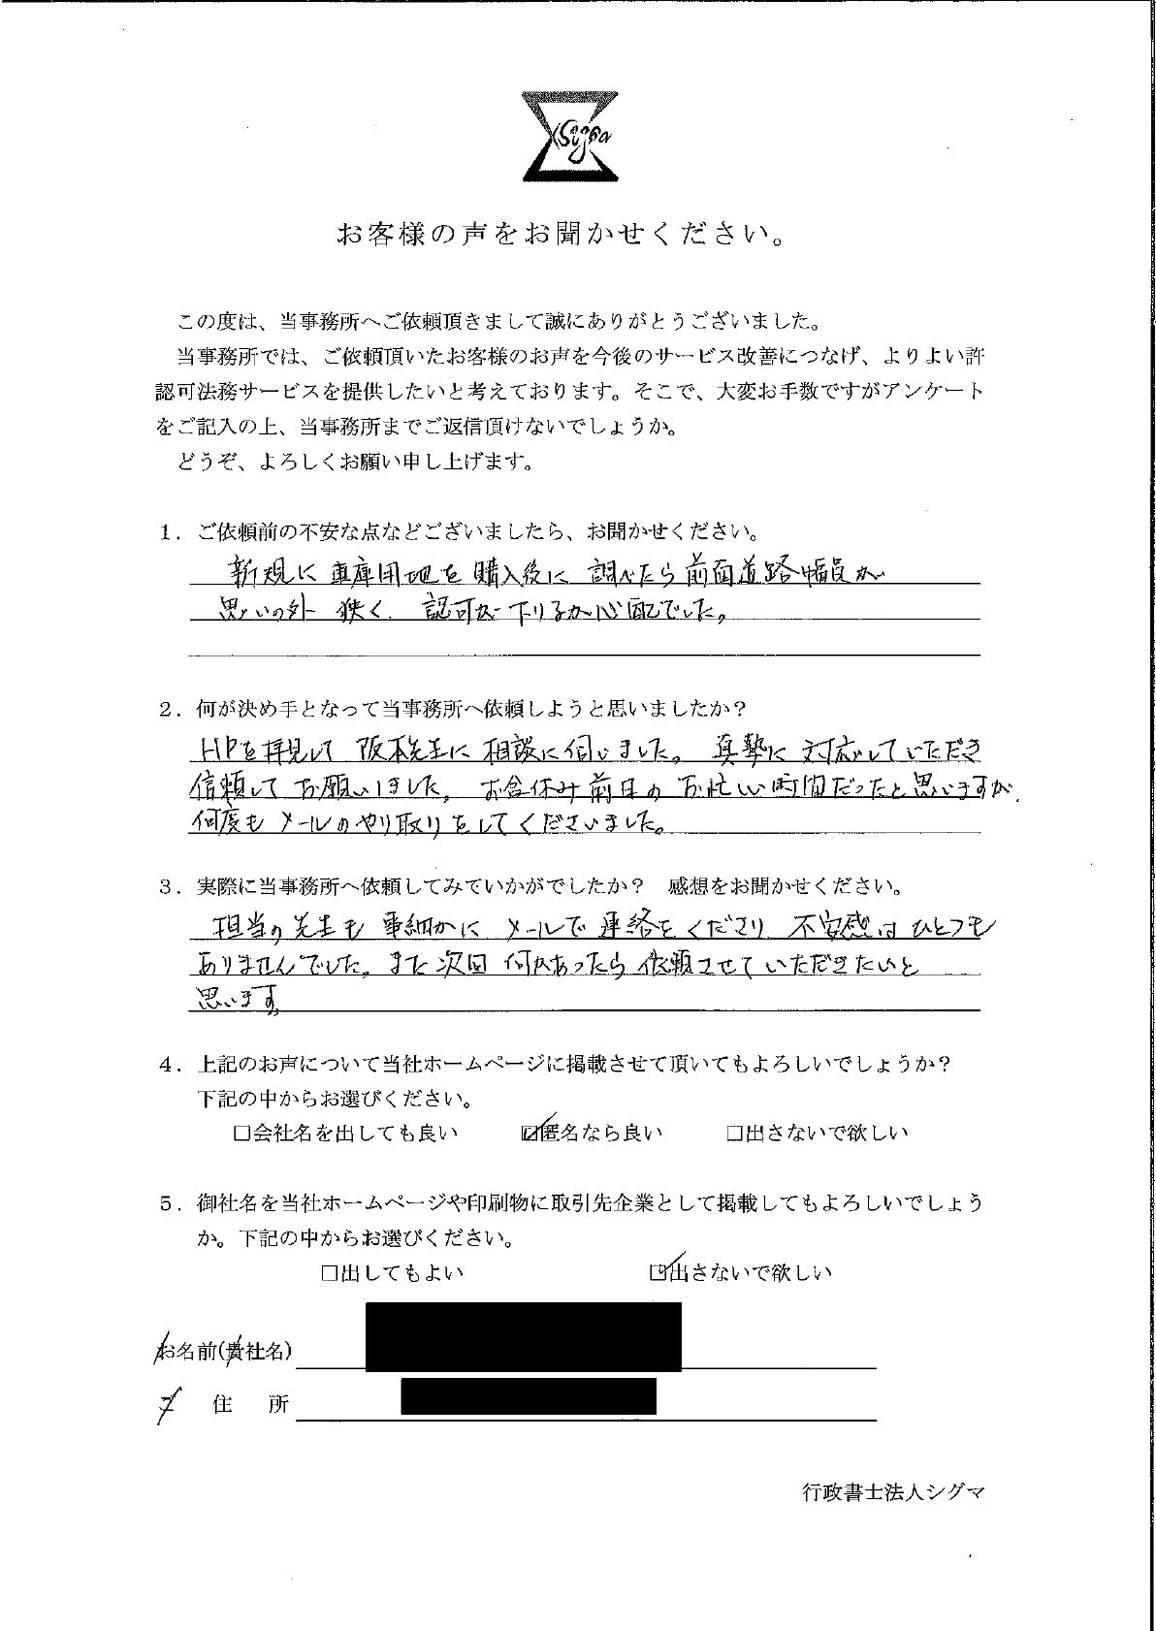 Sigma
お客様の声をお聞かせください。
この度は、当事務所へご依頼頂きまして誠にありがとうございました。
当事務所では、ご依頼頂いたお客様のお声を今後のサービス改善につなげ、よりよい許
認可法務サービスを提供したいと考えております。そこで、大変お手数ですがアンケート
をご記入の上、当事務所までご返信頂けないでしょうか。
どうぞ、よろしくお願い申し上げます。
1．ご依頼前の不安な点などございましたら、お聞かせください。
新規に車庫用地を購入後に調べたら前面道路幅員が
思いの外狭く、認可が下りるか心配でした。
2．何が決め手となって当事務所へ依頼しようと思いましたか？
HPを拝見して阪本先生に相談に伺いました。真摯に対応していただき
信頼してお願いしました。お盆休み前日のお忙しい時間だったと思いますが、
何度もメールのやり取りをしてくださいました。
3．実際に当事務所へ依頼してみていかがでしたか？　感想をお聞かせください。
担当の先生も事細かにメールで連絡をくださり不安感はひとつも
ありませんでした。また次回何かあったら依頼させていただきたいと
思います。
4．上記のお声について当社ホームページに掲載させて頂いてもよろしいでしょうか？
下記の中からお選びください。
□会社名を出しても良い　☑匿名なら良い　□出さないで欲しい
5．御社名を当社ホームページや印刷物に取引先企業として掲載してもよろしいでしょう
か。下記の中からお選びください。
□出してもよい　☑出さないで欲しい
お名前(貴社名)
ご 住 所
行政書士法人シグマ